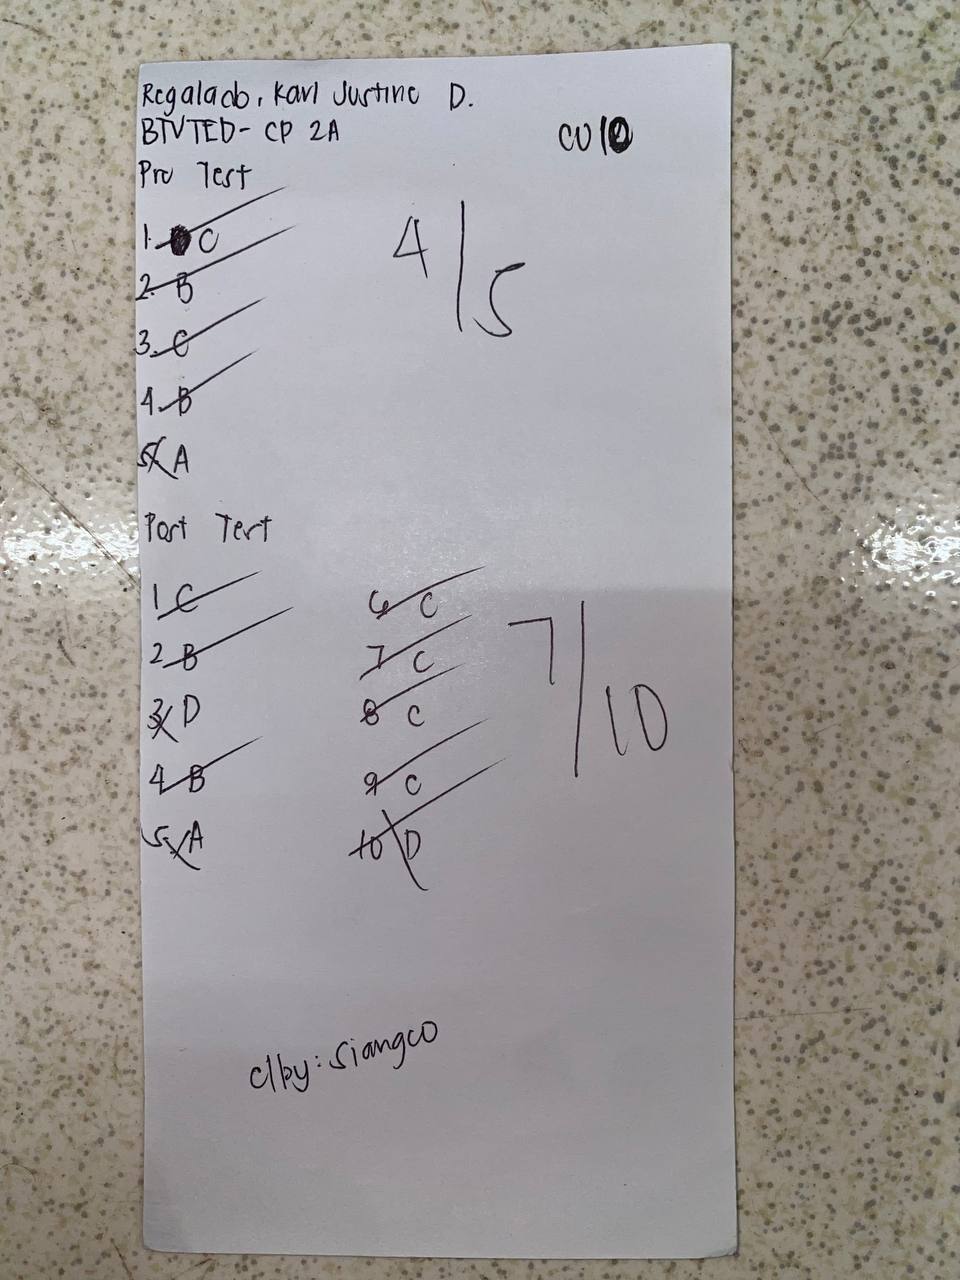 Regalado, Karl Justine D.
BTVTED- CP 2A
CU10
Pre Test
1. C
2. B
3. C
4. B
5. A
4/5
Post Test
1 C
2 B
3 D
4 B
5. A
6 C
7 C
8 C
9 C
10 D
7/10
c/by: Siangco